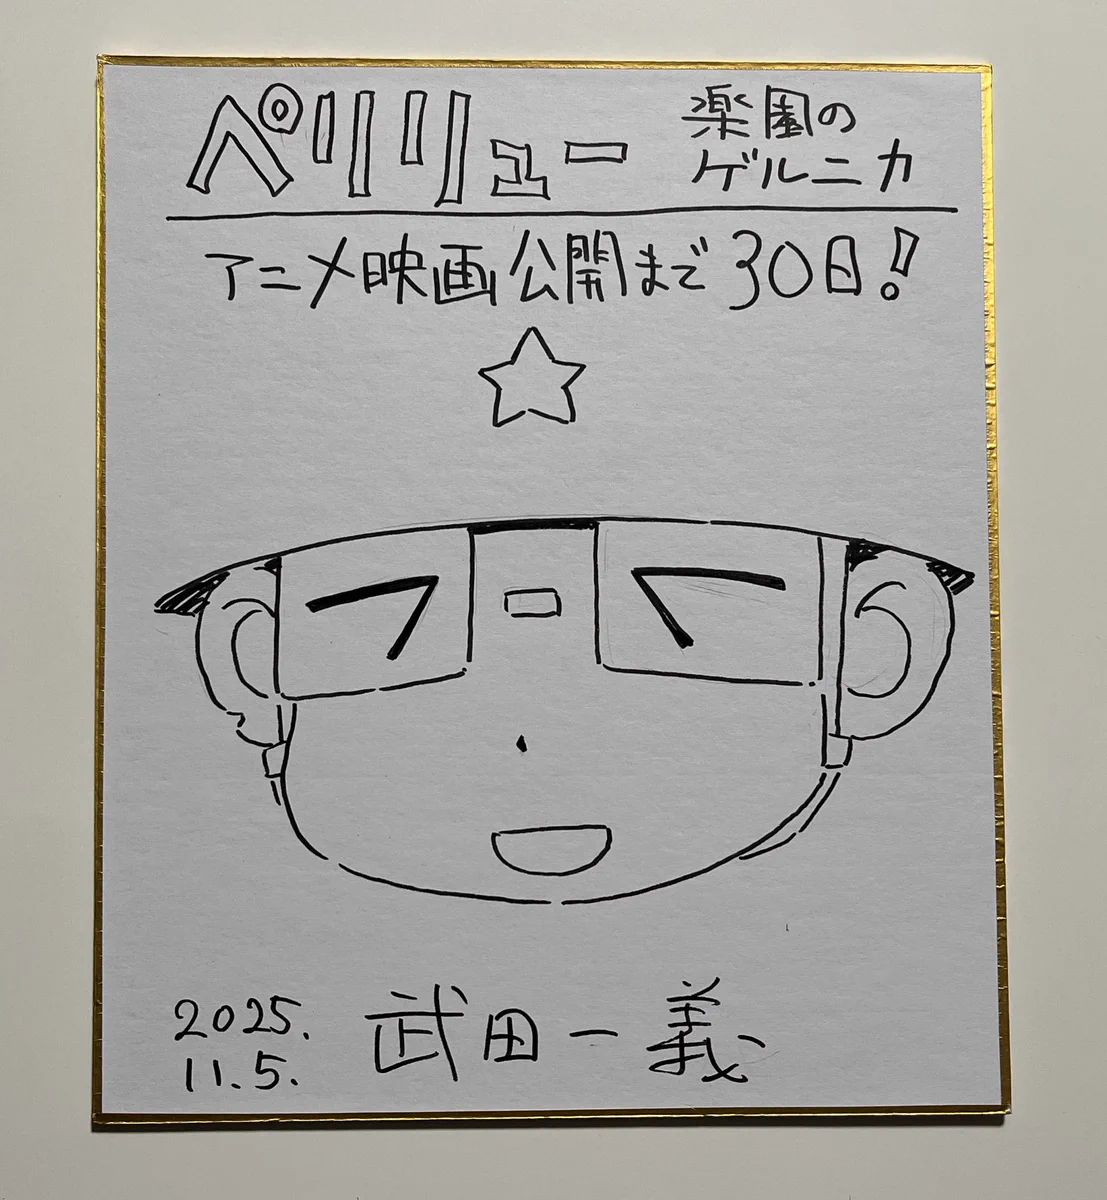 ペリリュー
楽園の
ゲルニカ
アニメ映画公開まで30日!
2025.
11.5.
武田一義